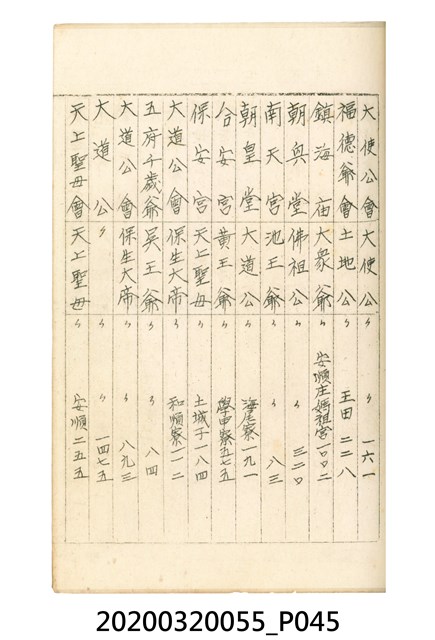 大使公會 大使公 〃 〃 一六一
福德爺會 土地公 〃 王田 二二八
鎮海庙 大衆爺 〃 安順庄媽祖宮一〇〇二
朝興堂 佛祖公 〃 〃 三二〇
南天宮 池王爺 〃 〃 八三
朝皇堂 大道公 〃 海尾寮 一九一
合安宮 黃王爺 〃 學甲寮五七五
保安宮 天上聖母 〃 土城子一八四
大道公會 保生大帝 〃 和順寮一一二
五府千歲爺 吳王爺 〃 〃 八四
大道公會 保生大帝 〃 〃 八九三
大道公 〃 〃 〃 一四七五
天上聖母會 天上聖母 〃 安順二五五
20200320055_P045